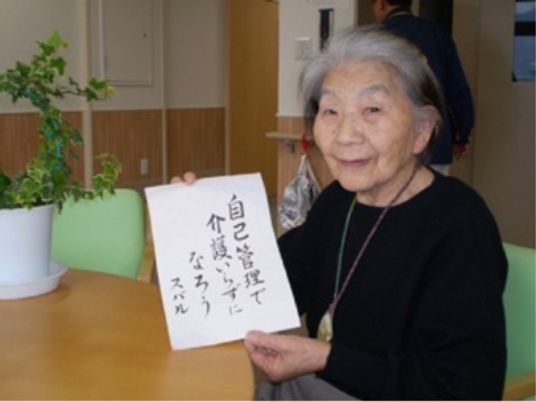 自己管理で
介護いらずに
なろう
スバル